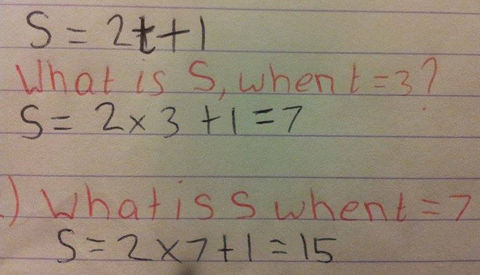 S = 2t+1
What is S, when t=3?
S = 2×3+1=7
.) What is S when t=7
S=2×7+1=15